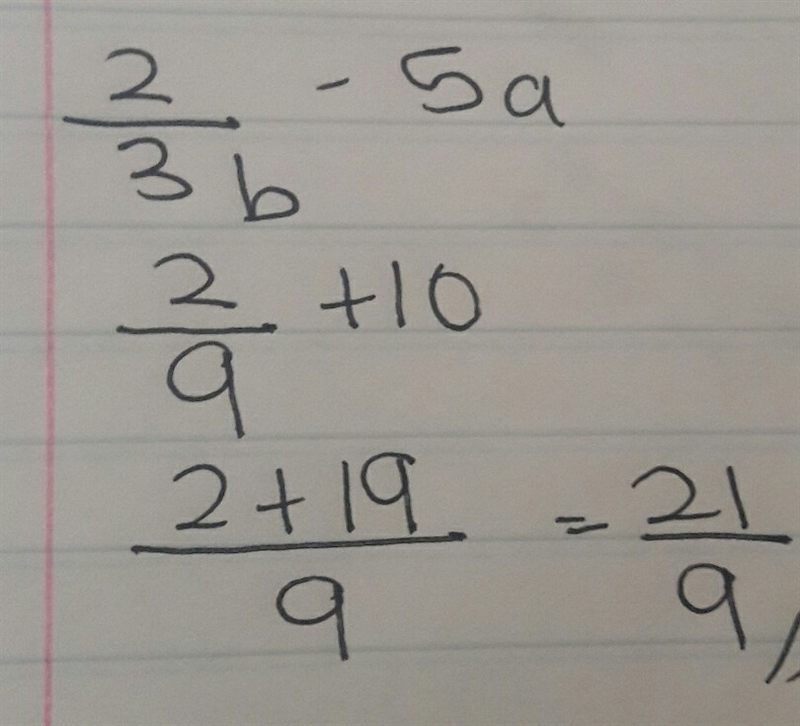 2/3b - 5a
2/9 + 10
(2 + 19)/9 = 21/9